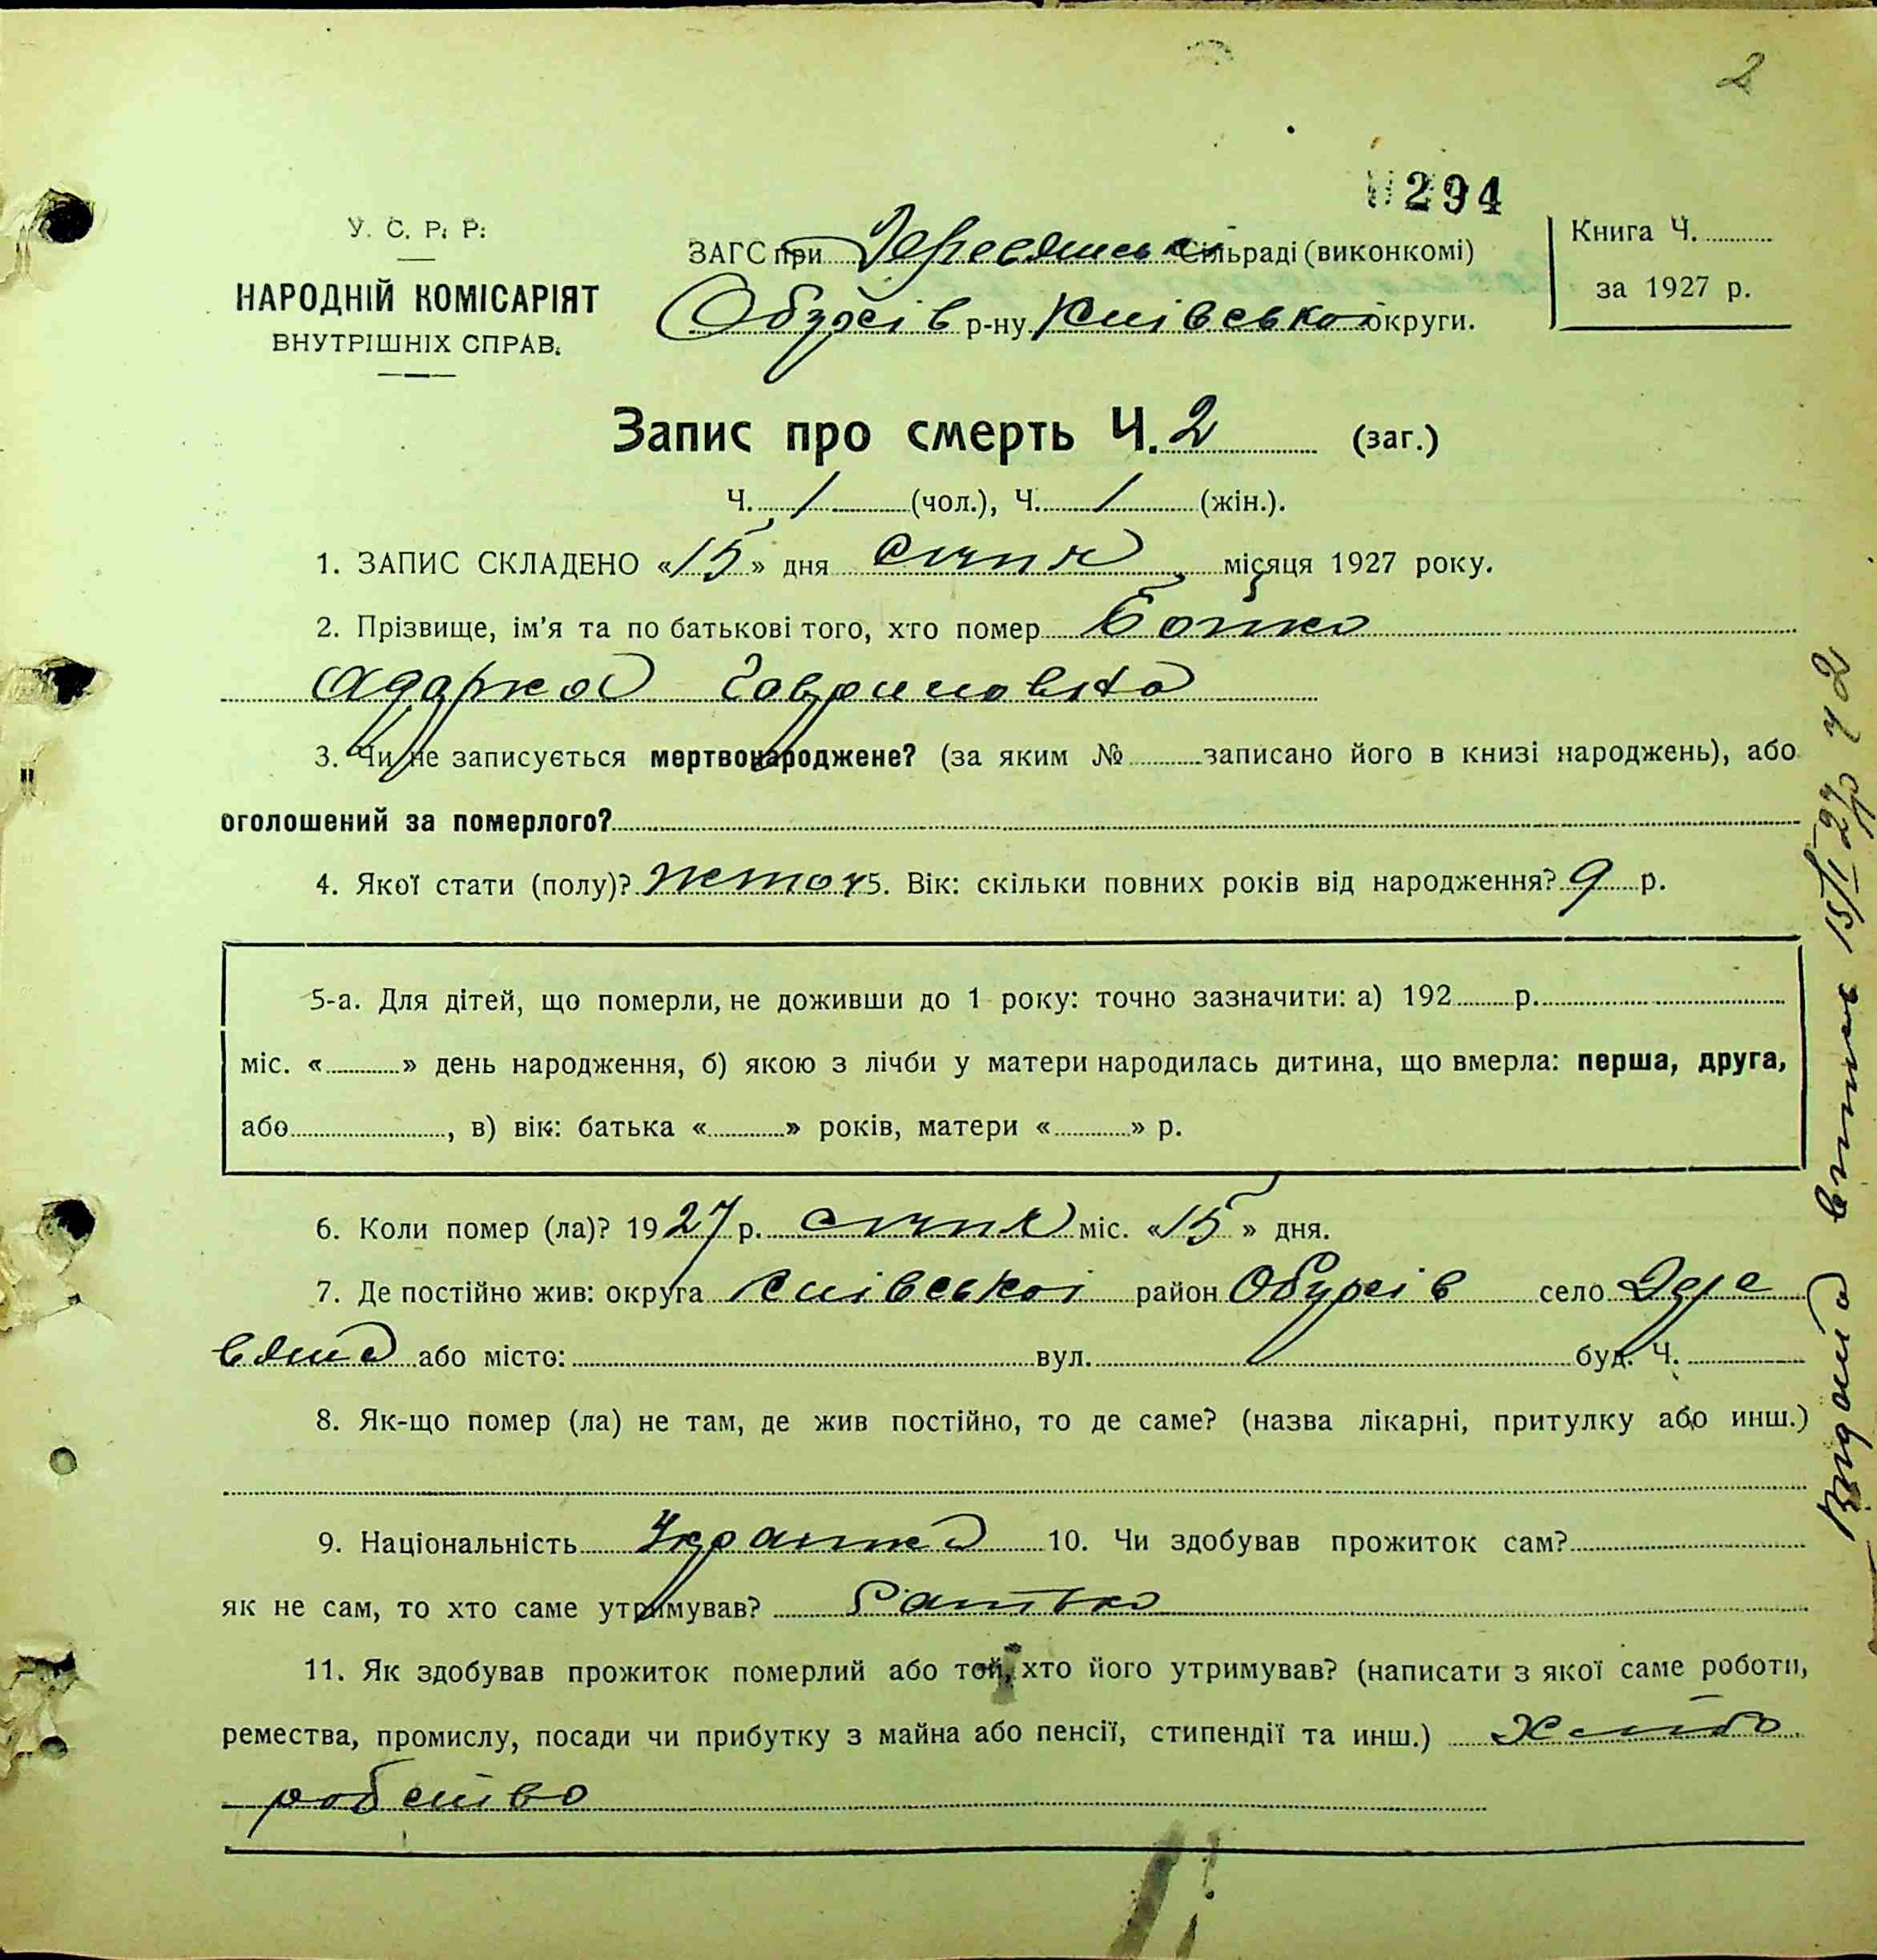 2
0294
У. С. Р. Р.
НАРОДНІЙ КОМІСАРІЯТ
ВНУТРІШНІХ СПРАВ.
ЗАГС при Деревянськ Сільраді (виконкомі)
Обухів р-ну Київської округи.
Книга Ч.
за 1927 р.
Запис про смерть Ч. 2 (заг.)
Ч. / (чол.), Ч. 1 (жін.).
1. ЗАПИС СКЛАДЕНО «15» дня січня місяця 1927 року.
2. Прізвище, ім'я та по батькові того, хто помер Бойко
Адарка Гавриловна
3. Чи не записується мертвонароджене? (за яким № записано його в книзі народжень), або
оголошений за померлого?
4. Якої стати (полу)? жіноч 5. Вік: скільки повних років від народження? 9 р.
5-а. Для дітей, що померли, не доживши до 1 року: точно зазначити: а) 192 р.
міс. « » день народження, б) якою з лічби у матери народилась дитина, що вмерла: перша, друга,
або , в) вік: батька « » років, матери « » р.
6. Коли помер (ла)? 1927 р. січня міс. «15» дня.
7. Де постійно жив: округа Київської район Обухів село Дере
вяна або місто: вул. буд. Ч.
8. Як-що помер (ла) не там, де жив постійно, то де саме? (назва лікарні, притулку або инш.)
9. Національність Украинка 10. Чи здобував прожиток сам?
як не сам, то хто саме утримував? Батько
11. Як здобував прожиток померлий або той, хто його утримував? (написати з якої саме роботи,
ремества, промислу, посади чи прибутку з майна або пенсії, стипендії та инш.) Хлібо
робство
Видана витяг 15/I 27 р Ч 2